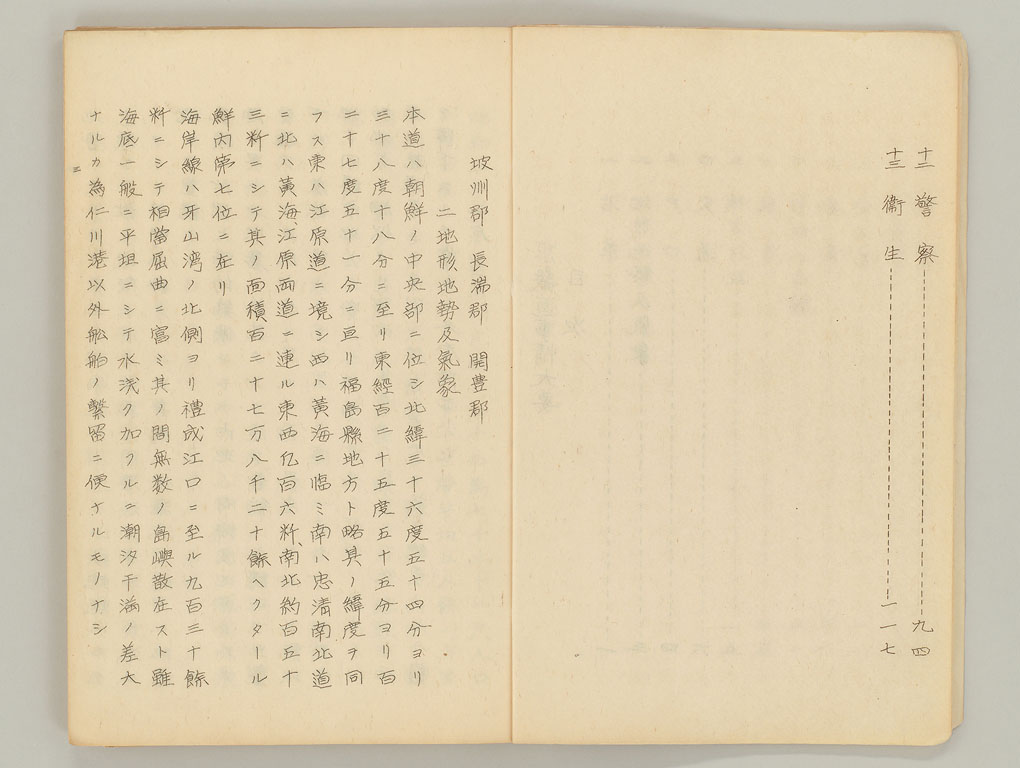 十二 警察 九四
十三 衞生 一一七
坡州郡 長湍郡 開豊郡
二地形地勢及氣象
本道ハ朝鮮ノ中央部ニ位シ北緯三十六度五十四分ヨリ
三十八度十八分ニ至リ東經百二十五度五十五分ヨリ百
二十七度五十一分ニ亘リ福島縣地方ト略其ノ緯度ヲ同
フス東ハ江原道ニ境シ西ハ黃海ニ臨ミ南ハ忠淸南北道
ニ北ハ黃海、江原両道ニ連ル東西亿百六粁、南北約百五十
三粁ニシテ其ノ面積百二十七万八千二十餘ヘクタール
鮮内第七位ニ在リ
海岸線ハ牙山湾ノ北側ヨリ禮成江口ニ至ル九百三十餘
粁ニシテ相當屈曲ニ富ミ其ノ間無数ノ島嶼散在スト雖
海底一般ニ平坦ニシテ水浅ク加フルニ潮汐干滿ノ差大
ナルカ為仁川港以外舩舶ノ繫留ニ便ナルモノナシ
二